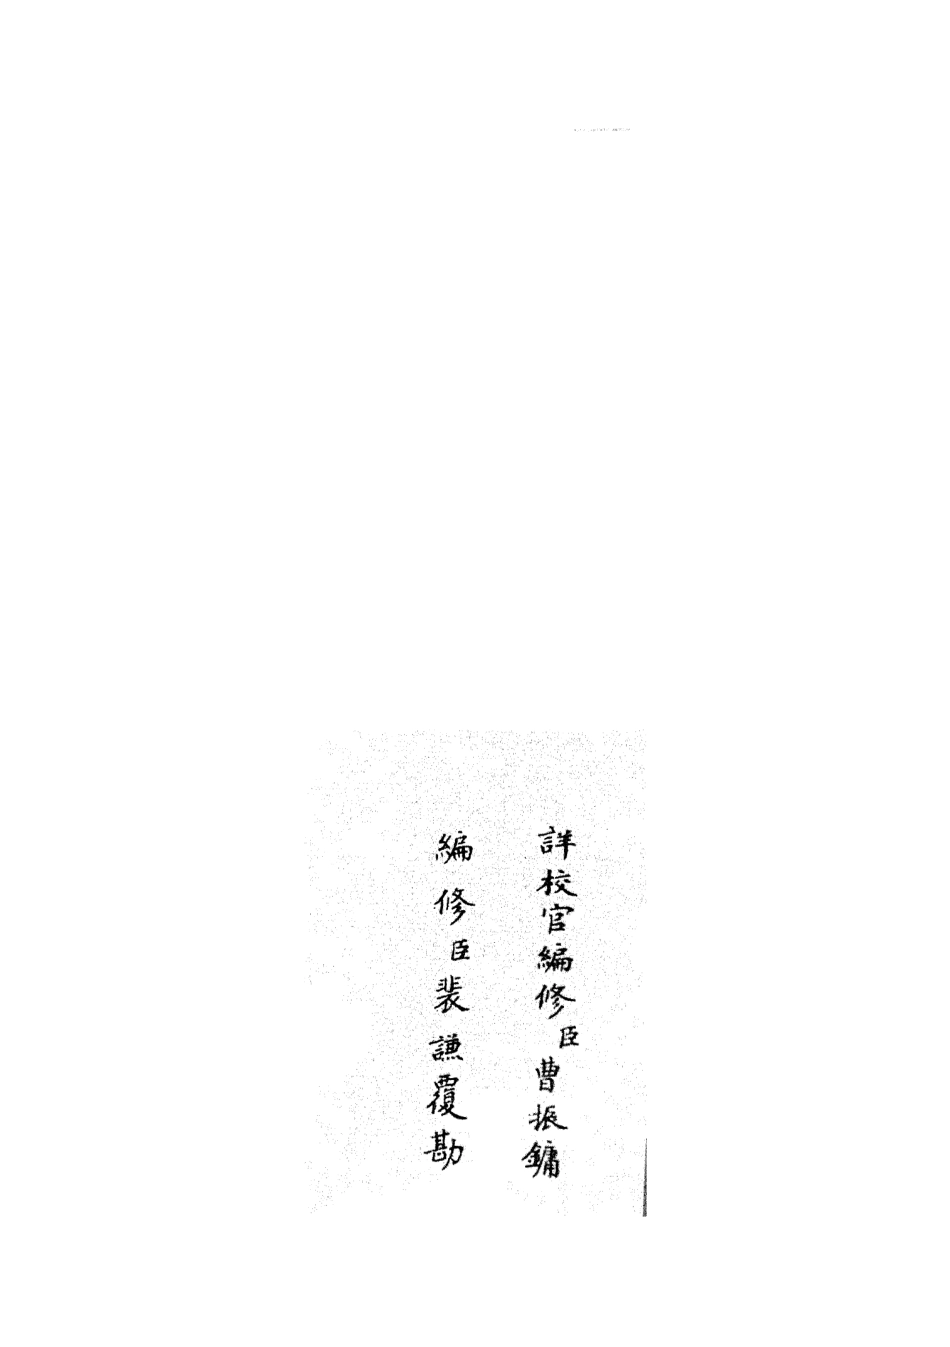 詳校官編修臣曹振鏞
編修臣裴謙覆勘